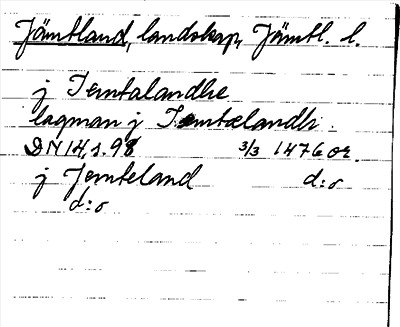 Jämtland, landskap, Jämtl. l.
j Iemtalandhe
lagman j Iemtælandh.
DN 14, s. 98 3/3 1476 or.
j Jemteland d:o
d:o